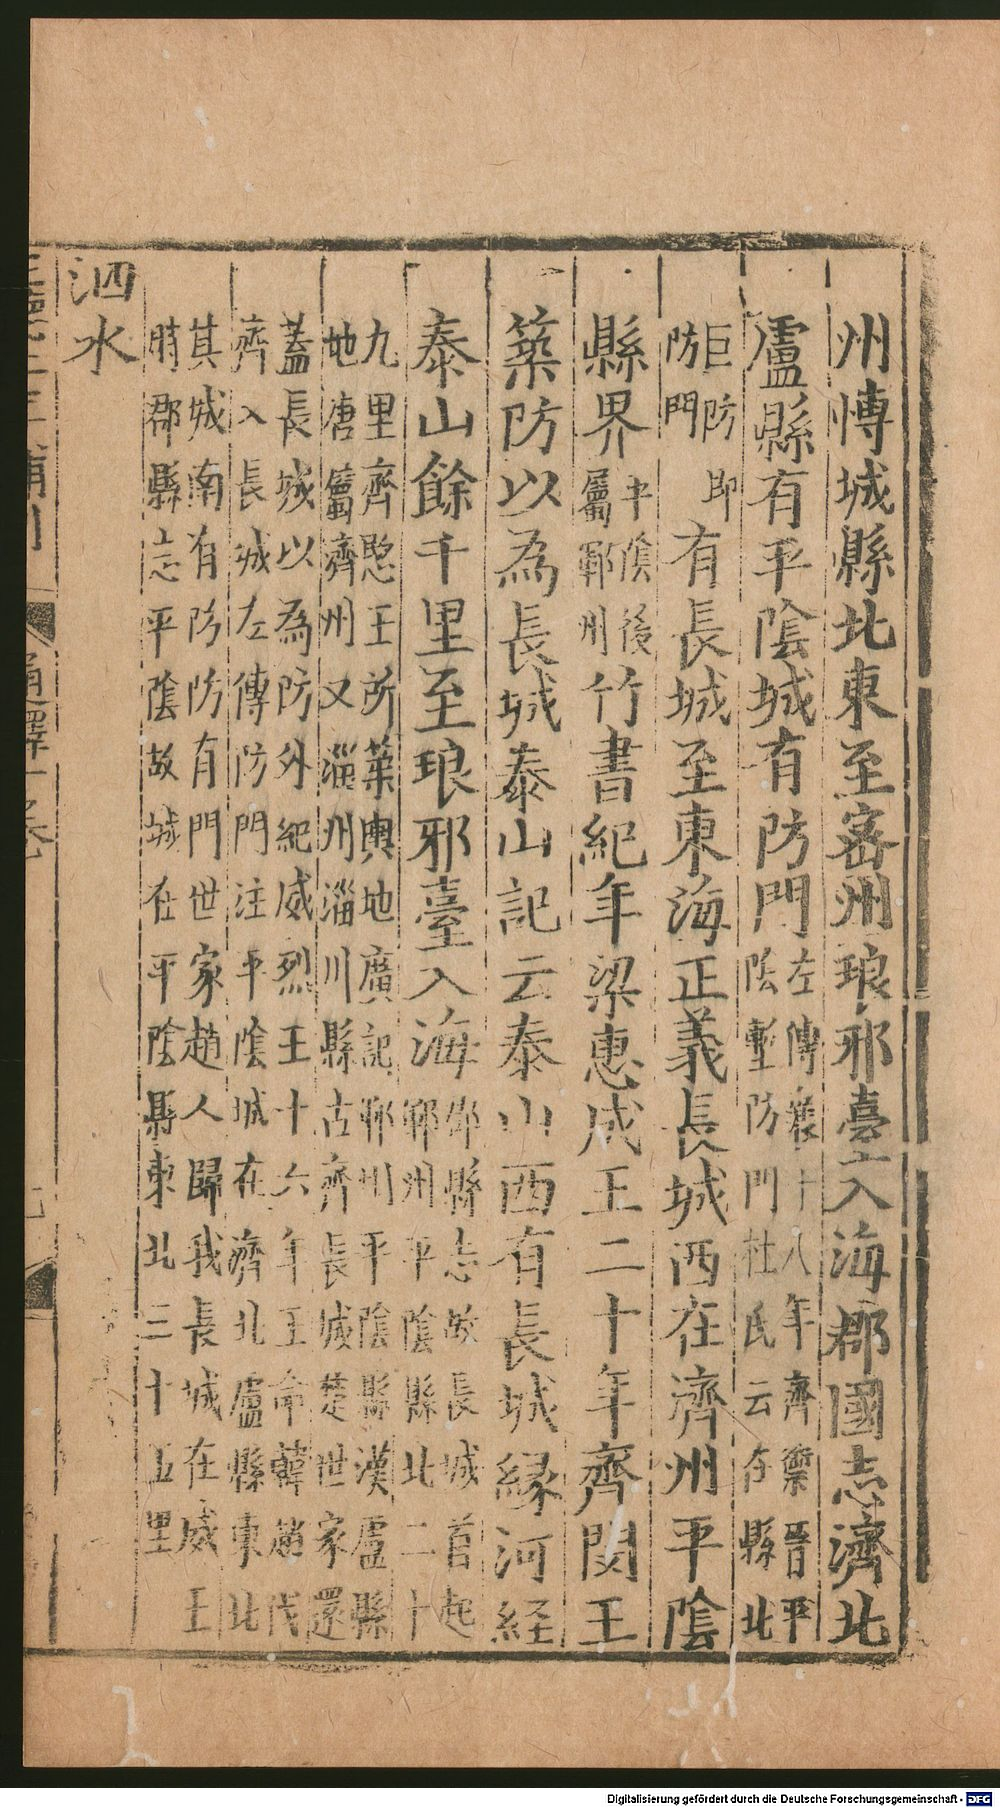 州慱城縣北東至宻州琅邪臺入海郡國志濟北
盧縣有平陰城有防門左傳襄十八年齊禦晉平
陰塹防門杜氏云在縣北
巨防即
防門
有長城至東海正義長城西在濟州平陰
縣界平陰後
屬鄆州
竹書紀年梁惠成王二十年齊閔王
築防以為長城泰山記云泰山西有長城緣河経
泰山餘千里至琅邪臺入海郡縣志故長城首起
鄆州平陰縣北二十
九里齊愍王所築輿地廣記鄆州平陰縣漢盧縣
地唐屬濟州又淄州淄川縣古齊長城楚世家還
蓋長城以為防外紀威烈王十六年王命韓趙伐
齊入長城左傳防門注平陰城在濟北盧縣東北
其城南有防防有門世家趙人歸我長城在威王
時郡縣志平陰故城在平陰縣東北三十五里
泗水
通釋十卷
Digitalisierung gefördert durch die Deutsche Forschungsgemeinschaft - DFG